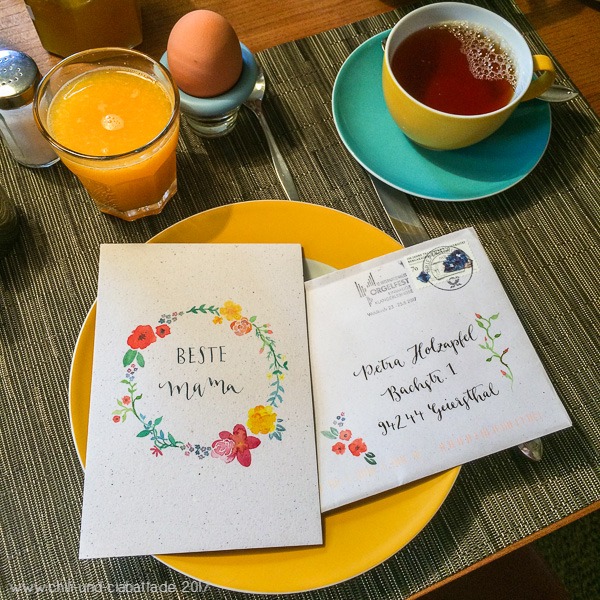 BESTE
mama
ORGELFEST
70
Petra Holzapfel
Bachstr. 1
94244 Geiersthal
www.chili-und-ciabatta.de, 2017